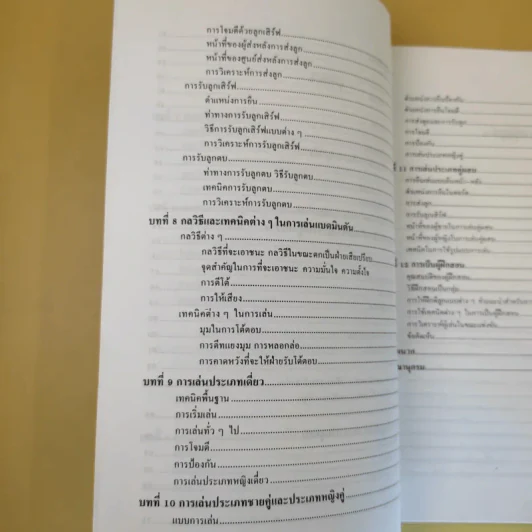 การโจมตีด้วยลูกเสิร์ฟ
หน้าที่ของผู้ส่งหลังการส่งลูก
หน้าที่ของศูนย์ส่งหลังการส่งลูก
การวิเคราะห์การส่งลูก
การรับลูกเสิร์ฟ
ตำแหน่งการยืน
ท่าทางการรับลูกเสิร์ฟ
วิธีการรับลูกเสิร์ฟแบบต่าง ๆ
การวิเคราะห์การรับลูกเสิร์ฟ
การรับลูกตบ
ท่าทางการรับลูกตบ วิธีรับลูกตบ
เทคนิคการรับลูกตบ
การวิเคราะห์การรับลูกตบ
บทที่ 8 กลวิธีและเทคนิคต่าง ๆ ในการเล่นแบดมินตัน
กลวิธีต่าง ๆ
กลวิธีที่จะเอาชนะ กลวิธีในขณะตกเป็นฝ่ายเสียเปรียบ
จุดสำคัญในการที่จะเอาชนะ ความมั่นใจ ความตั้งใจ
การตีโต้
การให้เสียง
เทคนิคต่าง ๆ ในการเล่น
มุมในการโต้ตอบ
การตีทแยงมุม การหลอกล่อ
การคาดหวังที่จะให้ฝ่ายรับโต้ตอบ
บทที่ 9 การเล่นประเภทเดี่ยว
เทคนิคพื้นฐาน
การเริ่มเล่น
การเล่นทั่ว ๆ ไป
การโจมตี
การป้องกัน
การเล่นประเภทหญิงเดี่ยว
บทที่ 10 การเล่นประเภทชายคู่และประเภทหญิงคู่
แบบการเล่น
การโจมตี
การป้องกัน
การเล่นประเภทหญิงคู่
11 การเล่นประเภทคู่ผสม
การส่งลูก
การรับลูกเสิร์ฟ
12 การเป็นผู้ฝึกสอน
คุณสมบัติของผู้ฝึกสอน